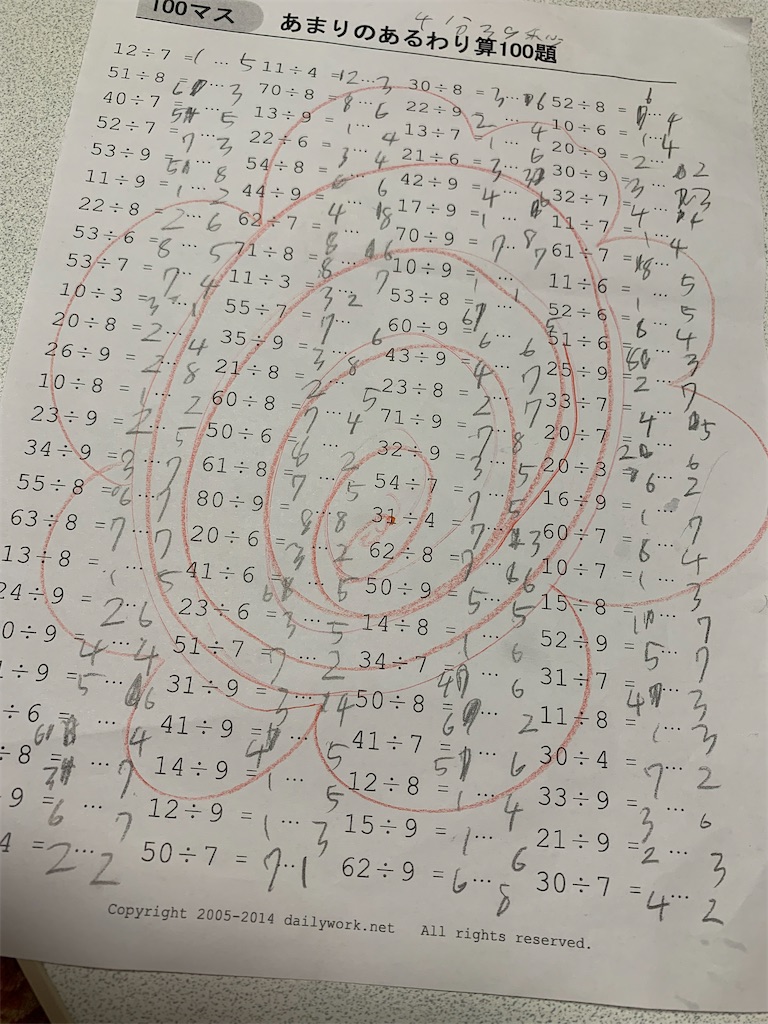 100マス
あまりのあるわり算100題
12÷7 = 1 … 5
51÷8 = 6 … 3
40÷7 = 5 … 5
52÷7 = 7 … 3
53÷9 = 5 … 8
11÷9 = 1 … 2
22÷8 = 2 … 6
53÷6 = 8 … 5
53÷7 = 7 … 4
10÷3 = 3 … 1
20÷8 = 2 … 4
26÷9 = 2 … 8
10÷8 = 1 … 2
23÷9 = 2 … 5
34÷9 = 3 … 7
55÷8 = 6 … 7
63÷8 = 7 … 7
13÷8 = 1 … 5
24÷9 = 2 … 6
0÷9 = 4 … 4
÷9 = 5 … 6
÷6 = 6 … 4
÷8 = 3 … 7
9 = 6 … 7
4 = 2 … 2
11÷4 = 2 … 3
70÷8 = 8 … 6
13÷9 = 1 … 4
22÷6 = 3 … 4
54÷8 = 6 … 6
44÷9 = 4 … 8
62÷7 = 8 … 6
71÷8 = 8 … 7
11÷3 = 3 … 2
55÷7 = 7 … 6
35÷9 = 3 … 8
21÷8 = 2 … 5
60÷8 = 7 … 4
50÷6 = 8 … 2
61÷8 = 7 … 5
80÷9 = 8 … 8
20÷6 = 3 … 2
41÷6 = 6 … 5
23÷6 = 3 … 5
51÷7 = 7 … 2
31÷9 = 3 … 4
41÷9 = 4 … 5
14÷9 = 1 … 5
12÷9 = 1 … 3
50÷7 = 7 … 1
30÷8 = 3 … 6
22÷9 = 2 … 4
13÷7 = 1 … 6
21÷6 = 3 … 3
42÷9 = 4 … 6
17÷9 = 1 … 8
70÷9 = 7 … 7
10÷9 = 1 … 1
53÷8 = 6 … 5
60÷9 = 6 … 6
43÷9 = 4 … 7
23÷8 = 2 … 7
71÷9 = 7 … 8
32÷9 = 3 … 5
54÷7 = 7 … 5
31÷4 = 7 … 3
62÷8 = 7 … 6
50÷9 = 5 … 5
14÷8 = 1 … 6
34÷7 = 4 … 6
50÷8 = 6 … 2
41÷7 = 5 … 6
12÷8 = 1 … 4
15÷9 = 1 … 6
62÷9 = 6 … 8
52÷8 = 6 … 4
10÷6 = 1 … 4
20÷9 = 2 … 2
30÷9 = 3 … 3
32÷7 = 4 … 4
11÷7 = 1 … 4
61÷7 = 8 … 5
11÷6 = 1 … 5
52÷6 = 8 … 4
51÷6 = 8 … 3
25÷9 = 2 … 7
33÷7 = 4 … 5
20÷7 = 2 … 6
20÷3 = 6 … 2
16÷9 = 1 … 7
60÷7 = 8 … 4
10÷7 = 1 … 3
15÷8 = 1 … 7
52÷9 = 5 … 7
31÷7 = 4 … 3
11÷8 = 1 … 3
30÷4 = 7 … 2
33÷9 = 3 … 6
21÷9 = 2 … 3
30÷7 = 4 … 2
Copyright 2005-2014 dailywork.net All rights reserved.